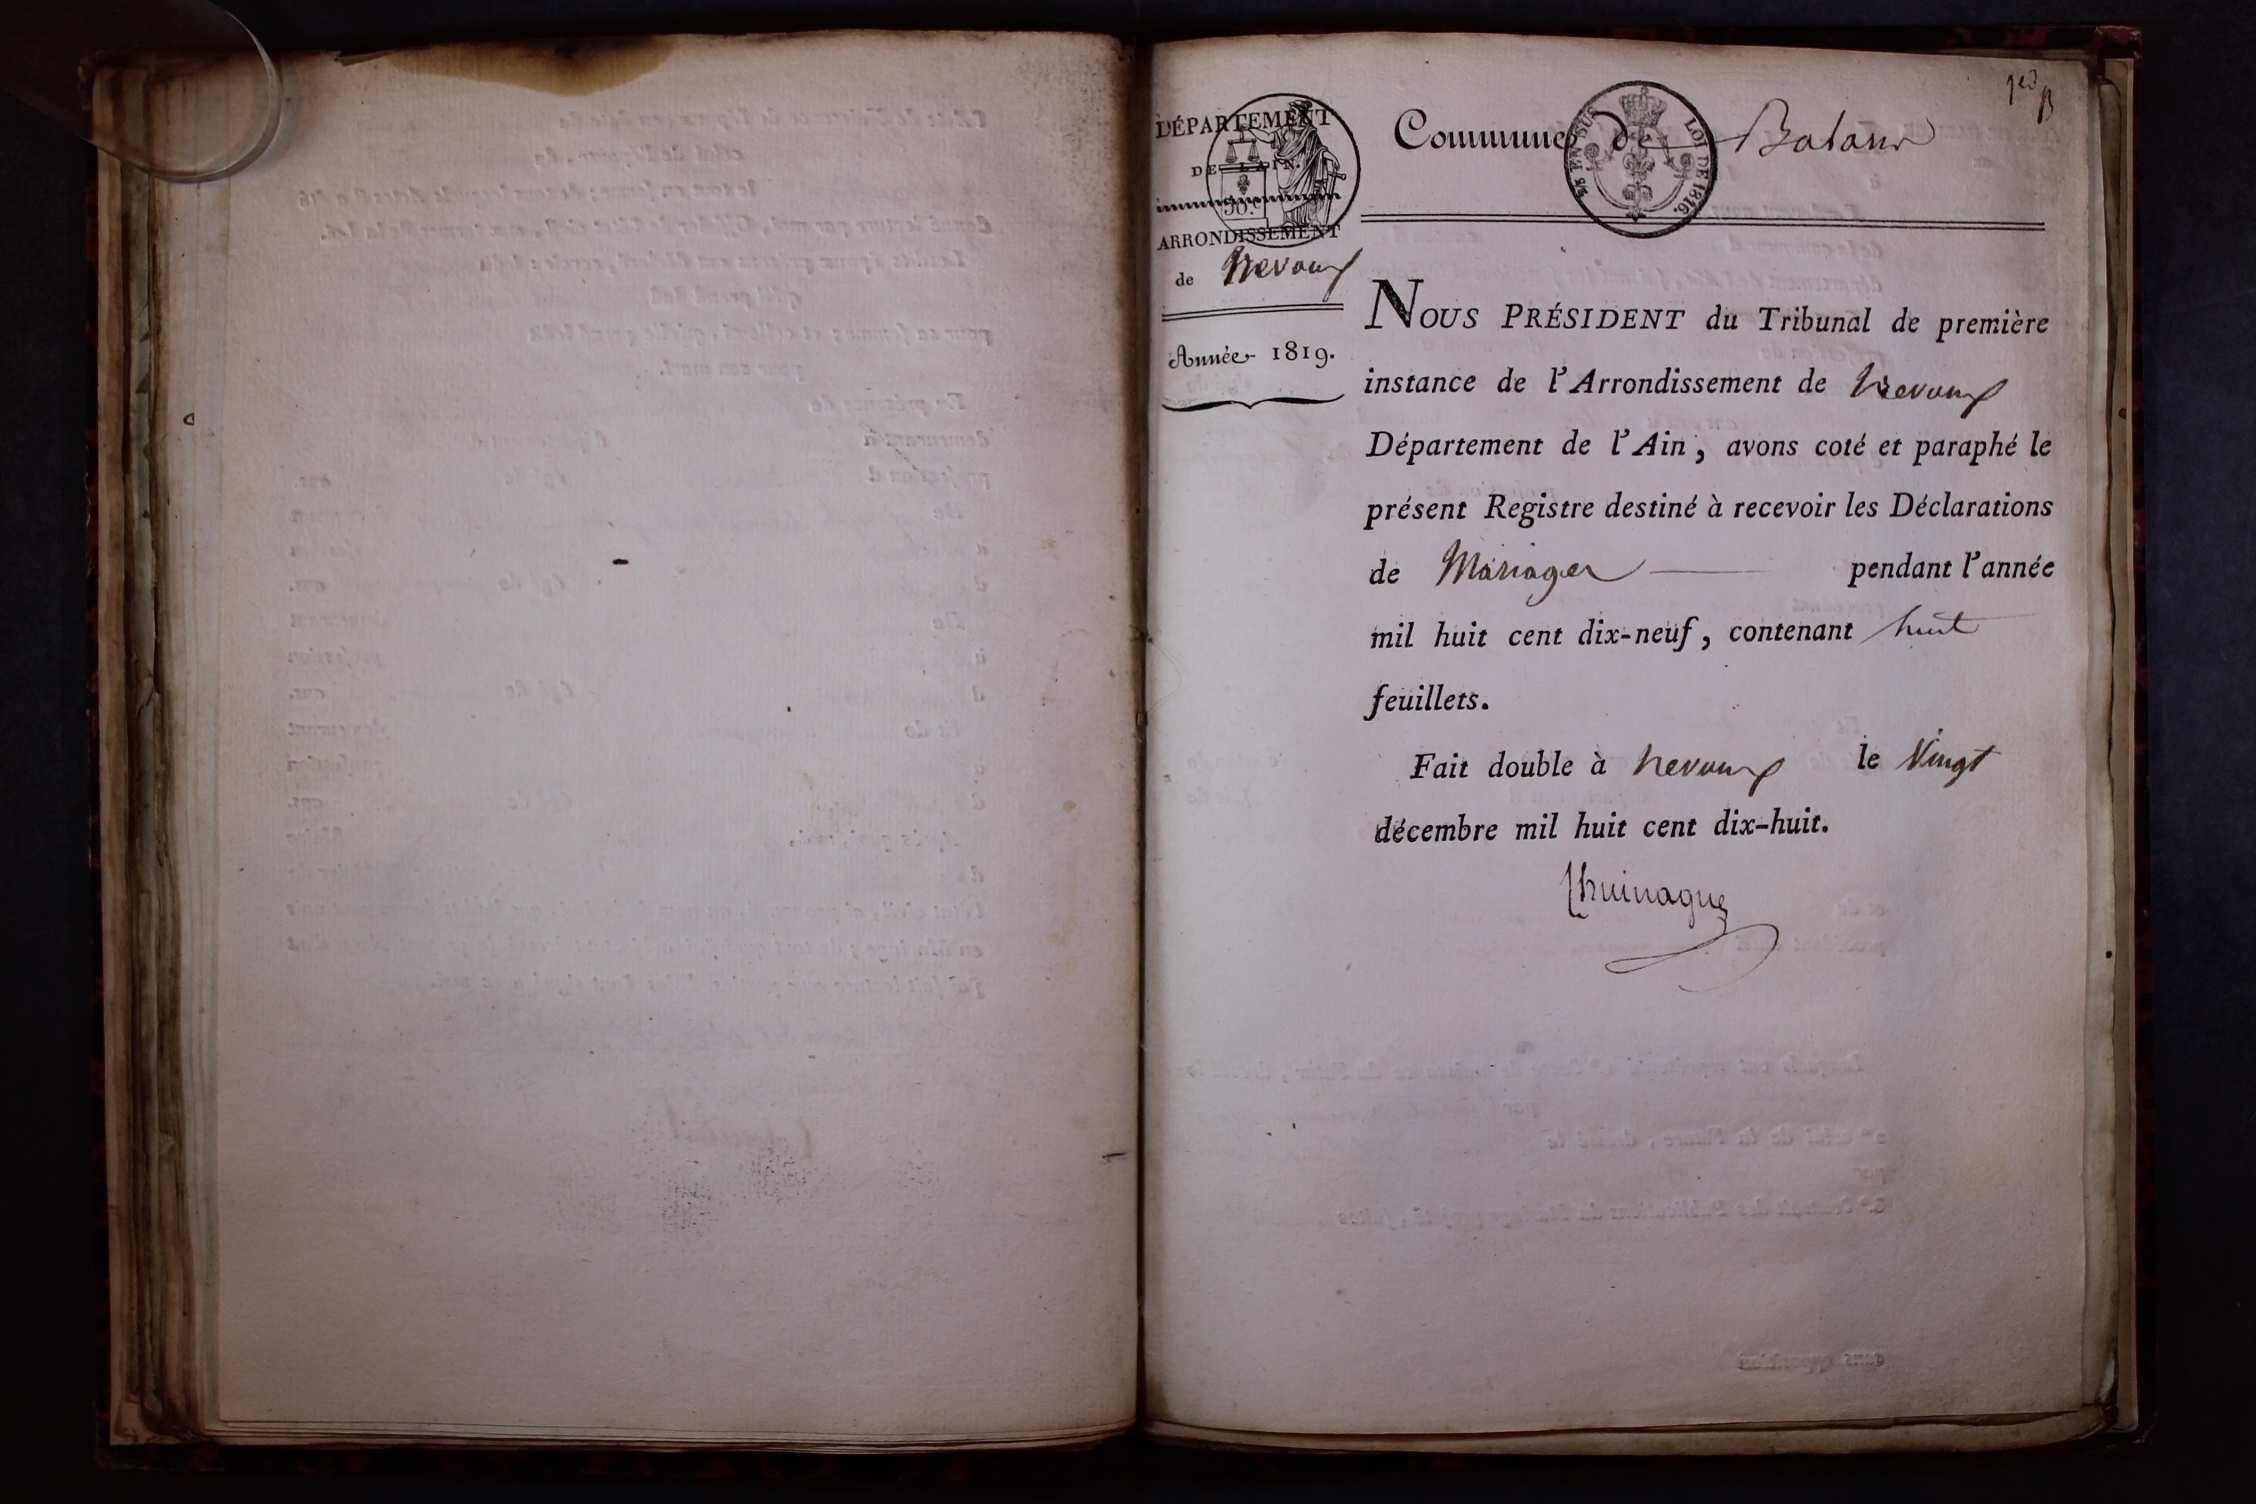 1er
DÉPARTEMENT
DE L'AIN.
ARRONDISSEMENT
de Trevoux
Année 1819.
50.c
Commune de Balan
EN SUS
LOI DE 1816.
NOUS PRÉSIDENT du Tribunal de première
instance de l'Arrondissement de Trevoux
Département de l'Ain, avons coté et paraphé le
présent Registre destiné à recevoir les Déclarations
de Mariages pendant l'année
mil huit cent dix-neuf, contenant huit
feuillets.
Fait double à Trevoux le Vingt
décembre mil huit cent dix-huit.